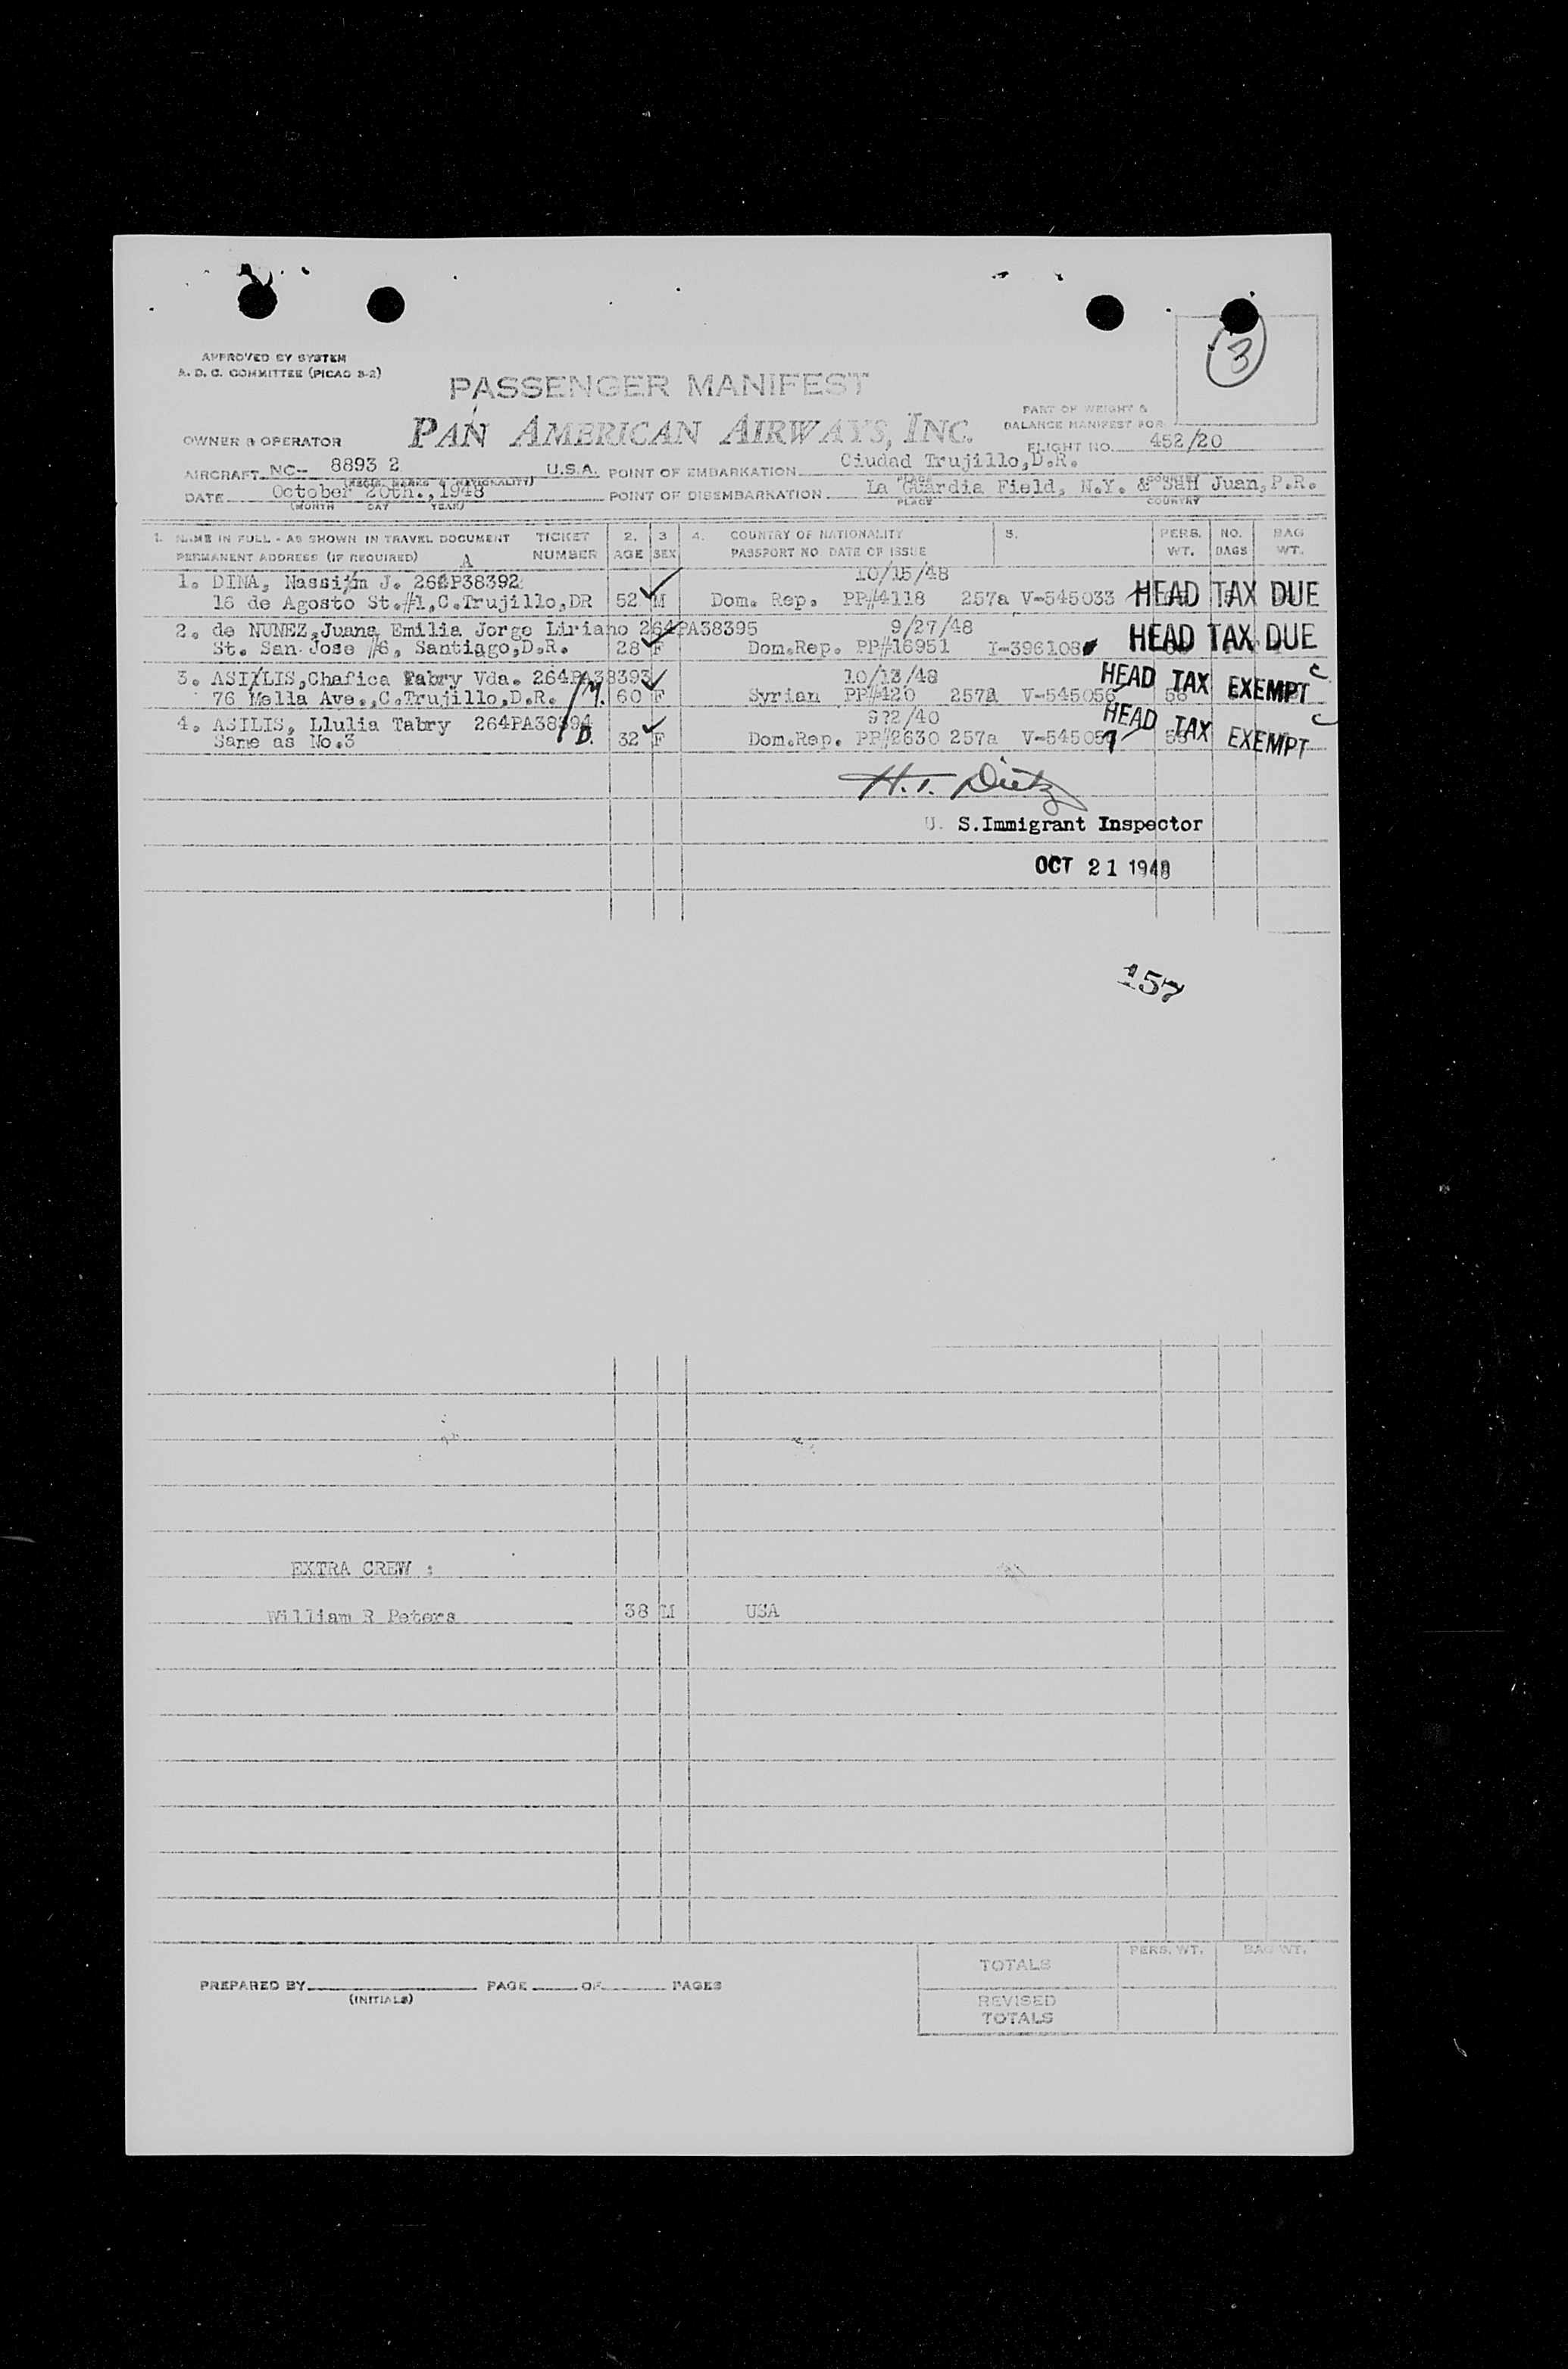 3
APPROVED BY SYSTEM
A. D. C. COMMITTEE (PICAO 8-2)
PASSENGER MANIFEST
PART OF WEIGHT &
BALANCE MANIFEST FOR
OWNER & OPERATOR PAN AMERICAN AIRWAYS, INC.
FLIGHT NO. 452/20
AIRCRAFT NC-- 8893 2 U.S.A. POINT OF EMBARKATION Ciudad Trujillo,D.R.
(REGIS. MARKS & NATIONALITY) PLACE COUNTRY
DATE October 20th.,1948 POINT OF DISEMBARKATION La Guardia Field, N.Y. & San Juan,P.R.
(MONTH DAY YEAR) PLACE COUNTRY
1. NAME IN FULL - AS SHOWN IN TRAVEL DOCUMENT TICKET 2. 3 4. COUNTRY OF NATIONALITY 5. PERS. NO. BAG
PERMANENT ADDRESS (IF REQUIRED) NUMBER AGE SEX PASSPORT NO DATE OF ISSUE WT. BAGS WT.
A
1. DINA, Nassim J. 264P38392 10/15/48
16 de Agosto St.#1,C.Trujillo,DR 52 M Dom. Rep. PP#4118 257a V-545033 HEAD TAX DUE
2. de NUNEZ,Juana Emilia Jorge Liriano 264PA38395 9/27/48
St. San Jose #6, Santiago,D.R. 28 F Dom.Rep. PP#16951 I-396108 HEAD TAX DUE
3. ASILIS,Chafica Tabry Vda. 264PA38393 10/13/48 HEAD TAX EXEMPT C
76 Mella Ave.,C.Trujillo,D.R. /M. 60 F Syrian PP#420 257a V-545056 56
4. ASILIS, Llulia Tabry 264PA38394 9?2/40 HEAD TAX EXEMPT C
Same as No.3 /D. 32 F Dom.Rep. PP#2630 257a V-545057
H.T. Dietz
U. S.Immigrant Inspector
OCT 21 1948
157
EXTRA CREW :
William R Peters 38 M USA
PREPARED BY PAGE OF PAGES
(INITIALS)
PERS. WT. BAG WT.
TOTALS
REVISED
TOTALS